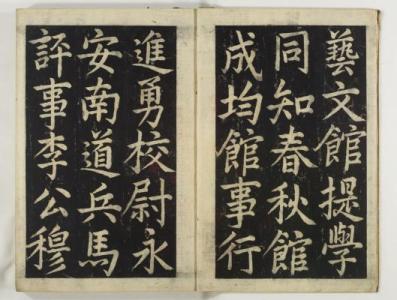 藝文館提學
同知春秋館
成均館事行
進勇校尉永
安南道兵馬
評事李公穆